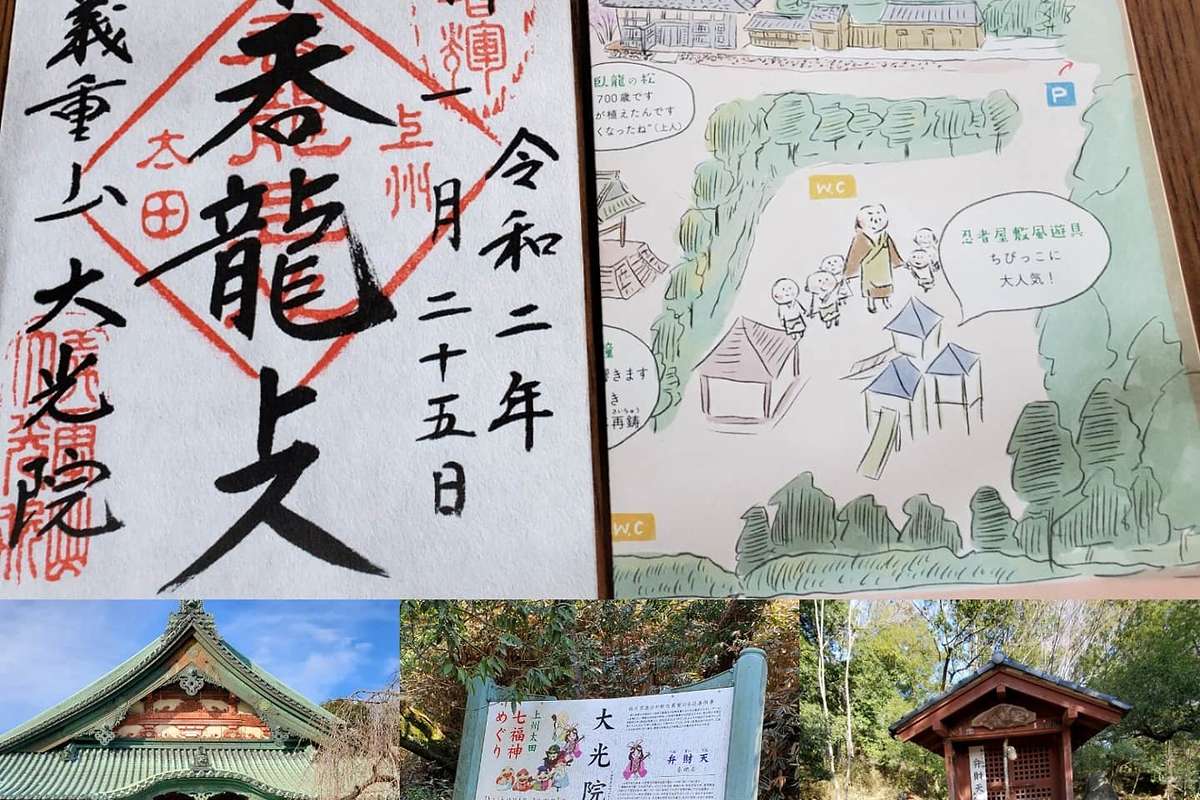 令和二年
一月二十五日
上州
呑龍上人
太田
義重山 大光院
P
臥龍の松
700歳です
が植えたんです
くなったね"(上人)
W.C
忍者屋敷風遊具
ちびっこに
大人気！
きます
き
さいちゅう
再鋳
W.C
上州太田
七福神
めぐり
大光院
弁財天
弁財天